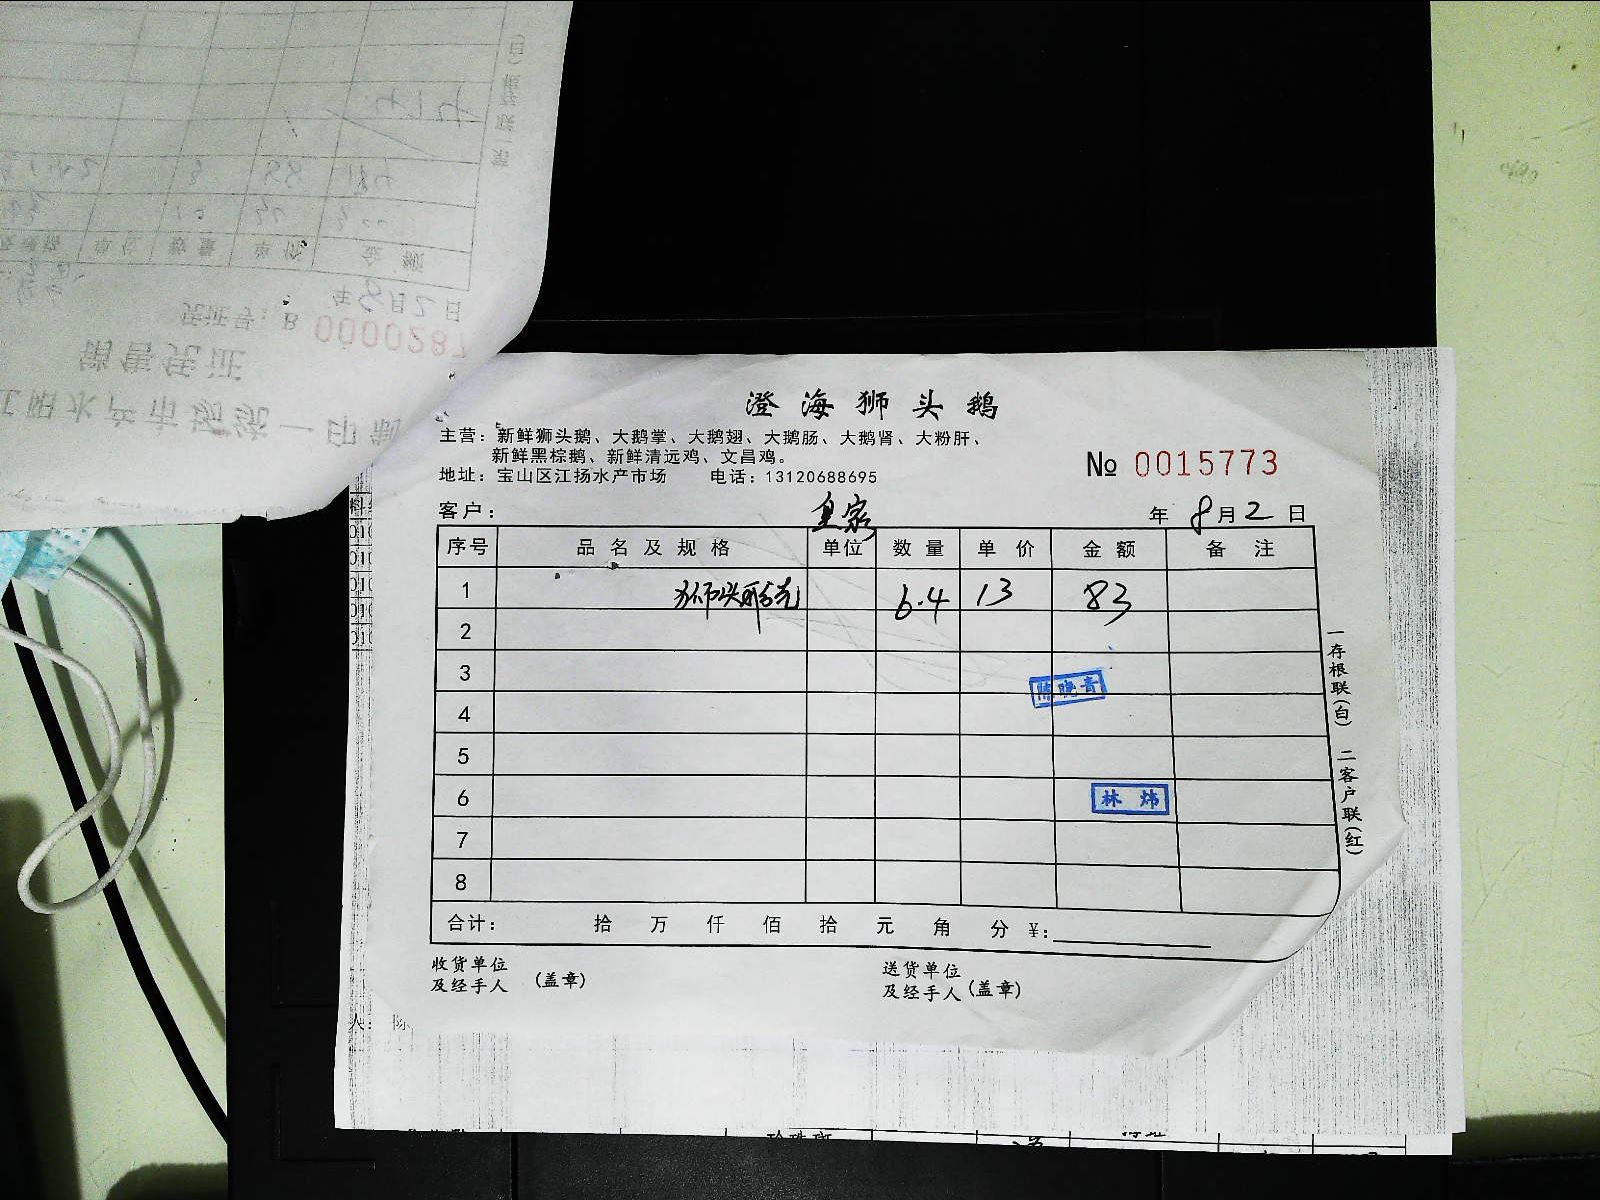 澄海狮头鹅
主营：新鲜狮头鹅、大鹅掌、大鹅翅、大鹅肠、大鹅肾、大粉肝、
新鲜黑棕鹅、新鲜清远鸡、文昌鸡。
地址：宝山区江扬水产市场 电话：13120688695
№ 0015773
客户： 皇家 年 8月2日
序号 品名及规格 单位 数量 单价 金额 备注
1 狮头鹅壳 6.4 13 83
2
3 陈晓青
4
5
6 林炜
7
8
合计： 拾 万 仟 佰 拾 元 角 分 ¥:
收货单位
及经手人 (盖章)
送货单位
及经手人 (盖章)
一存根联(白) 二客户联(红)
江阳水产市场统一印制
销售凭证
凭证号：B 0000287
年8月2日
单位 数量 单价 金额